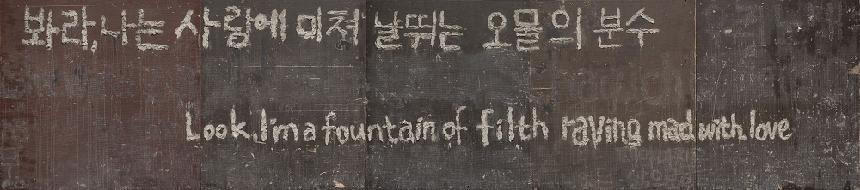 봐라, 나는 사랑에 미쳐 날뛰는 오물의 분수
Look, I'm a fountain of filth raving mad with love